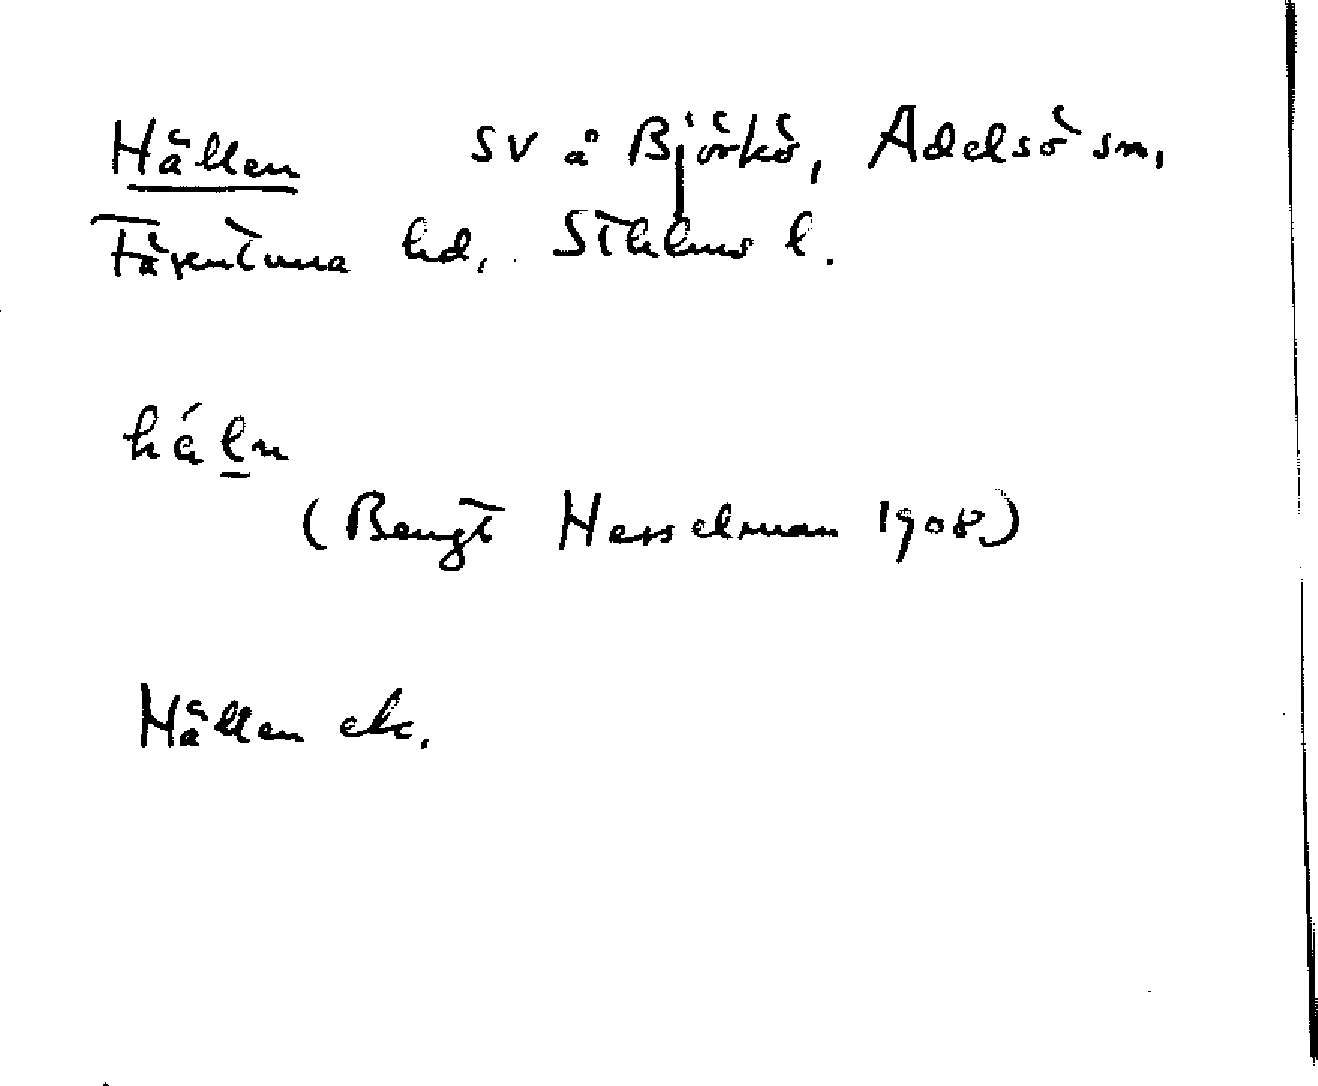 Hällen sv å Björkö, Adelsö sn,
Färentuna hd, Sthlms l.
háln
(Bengt Hesselman 1908)
Hällen etc.